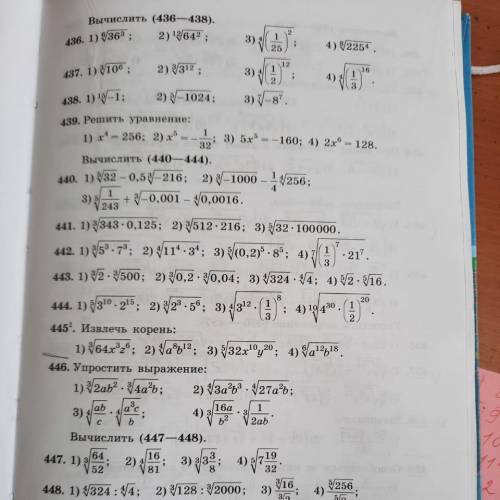 Вычислить (436—438).
436. 1) ⁶√36³; 2) ¹²√64²; 3) ⁴√(1/25)²; 4) ⁸√225⁴.
437. 1) ³√10⁶; 2) ³√3¹²; 3) ⁴√(1/2)¹²; 4) ⁴√(1/3)¹⁶.
438. 1) √−1; 2) √−1024; 3) √−8⁷.
439. Решить уравнение:
1) x⁴ = 256; 2) x⁵ = −1/32; 3) 5x⁵ = −160; 4) 2x⁶ = 128.
Вычислить (440—444).
440. 1) ⁵√32 − 0,5 ³√−216; 2) ³√−1000 − 1/4 ⁴√256;
3) ⁵√1/243 + ³√−0,001 − ⁴√0,0016.
441. 1) ³√343 · 0,125; 2) ³√512 · 216; 3) ⁵√32 · 100000.
442. 1) ³√5³ · 7³; 2) ⁴√11⁴ · 3⁴; 3) ⁵√(0,2)⁵ · 8⁵; 4) ⁷√(1/3)⁷ · 21⁷.
443. 1) ³√2 · ³√500; 2) ³√0,2 · ³√0,04; 3) ⁴√324 · ⁴√4; 4) ⁵√2 · ⁵√16.
444. 1) ⁵√3¹⁰ · 2¹⁵; 2) ³√2³ · 5⁶; 3) ⁴√3¹² · (1/3)⁸; 4) ¹⁰√4³⁰ · (1/2)²⁰.
445. Извлечь корень:
1) ³√64x³z⁶; 2) ⁴√a⁸b¹²; 3) ⁵√32x¹⁰y²⁰; 4) ⁶√a¹²b¹⁸.
446. Упростить выражение:
1) ³√2ab² · ³√4a²b; 2) ⁴√3a²b³ · ⁴√27a²b;
3) ⁴√ab/c · ⁴√a³c/b; 4) ³√16a/b² · ³√1/2ab.
Вычислить (447—448).
447. 1) √64/52; 2) ⁴√16/81; 3) ³√3 3/8; 4) ⁵√7 19/32.
448. 1) ⁴√324 : ⁴√4; 2) ³√128 : ³√2000; 3) ³√16; 4) ⁵√256